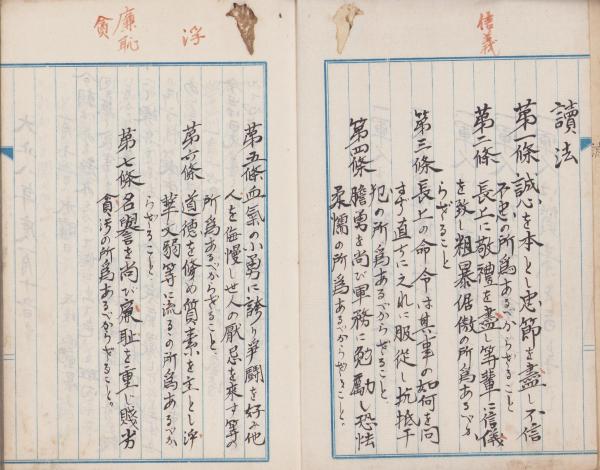 信義
讀法
第一條 誠を本とし忠節を盡し不信
不忠の所爲あるべからざること
第二條 長上に敬禮を盡し等輩に信儀
を致し粗暴倨傲の所爲あるべか
らざること
第三條 長上の命令は其事の如何を問
はず直ちに之れに服從し抗抵干
犯の所爲あるべからざること
第四條 膽勇を尚び軍務に勉勵し恐怯
柔懦の所爲あるべからざること
浮
廉恥
貪
第五條 血氣の小勇に誇り爭鬪を好み他
人を侮慢し世人の厭忌を來す等の
所爲あるべからざること
第六條 道德を修め質素を主とし浮
華文弱等に流るの所爲あるべか
らざること
第七條 名譽を尚び廉恥を重じ賤劣
貪汚の所爲あるべからざること。